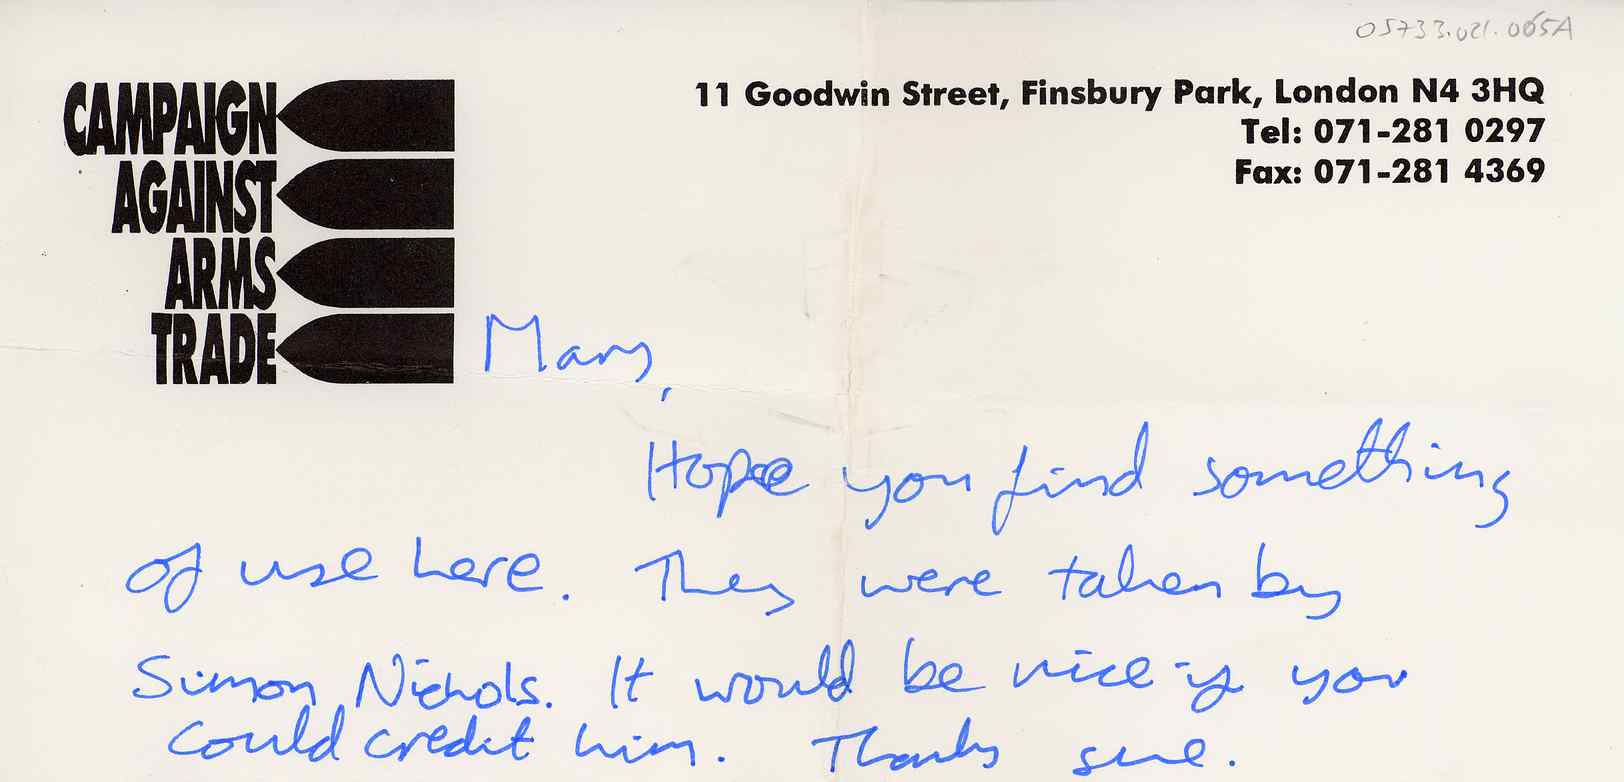 05733.021.065A
CAMPAIGN
AGAINST
ARMS
TRADE
11 Goodwin Street, Finsbury Park, London N4 3HQ
Tel: 071-281 0297
Fax: 071-281 4369
Mary,
Hope you find something
of use here. They were taken by
Simon Nichols. It would be nice if you
could credit him. Thanks Sue.